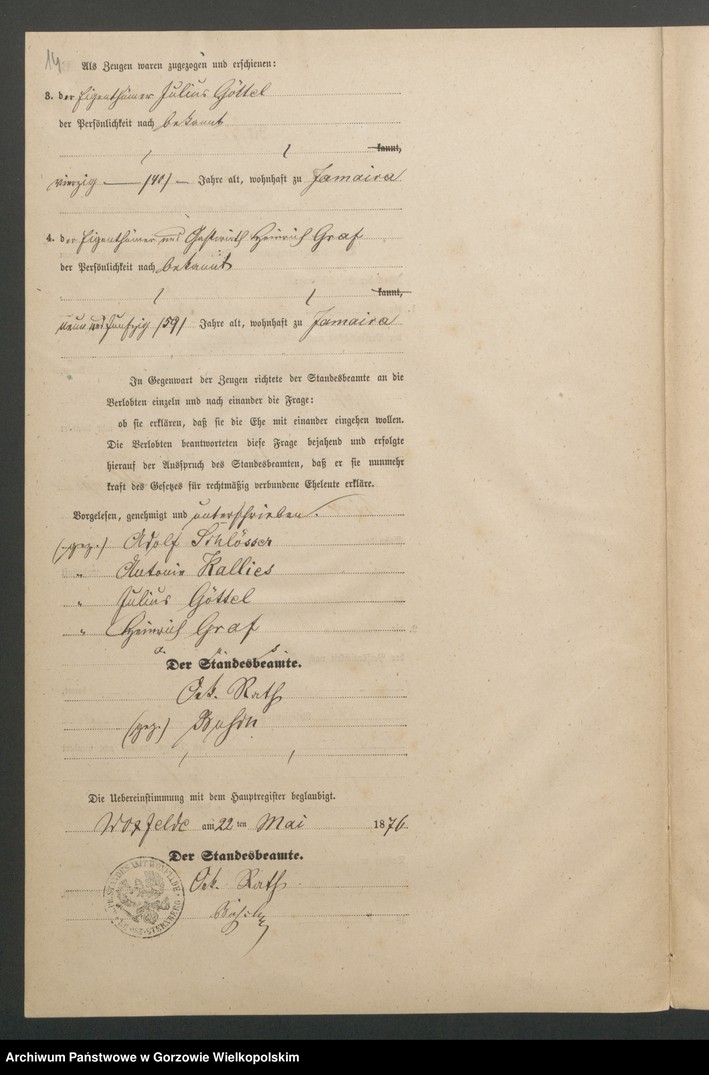 14
Als Zeugen waren zugezogen und erschienen:
3. der Eigenthümer Julius Göttel
der Persönlichkeit nach bekannt
kannt,
vierzig /40/ Jahre alt, wohnhaft zu Jamaica
4. der Eigenthümer und Gastwirth Heinrich Graf
der Persönlichkeit nach bekannt
kannt,
neun und fünfzig /59/ Jahre alt, wohnhaft zu Jamaica
In Gegenwart der Zeugen richtete der Standesbeamte an die
Verlobten einzeln und nach einander die Frage:
ob sie erklären, daß sie die Ehe mit einander eingehen wollen.
Die Verlobten beantworteten diese Frage bejahend und erfolgte
hierauf der Ausspruch des Standesbeamten, daß er sie nunmehr
kraft des Gesetzes für rechtmäßig verbundene Eheleute erkläre.
Vorgelesen, genehmigt und unterschrieben.
(gez.) Adolf Schlösser
" Antonie Kallies
" Julius Göttel
" Heinrich Graf
Der Standesbeamte.
Oek. Rath
(gez.)
Die Uebereinstimmung mit dem Hauptregister beglaubigt.
am 22 ten Mai 1876
Der Standesbeamte.
Oek. Rath
Archiwum Państwowe w Gorzowie Wielkopolskim